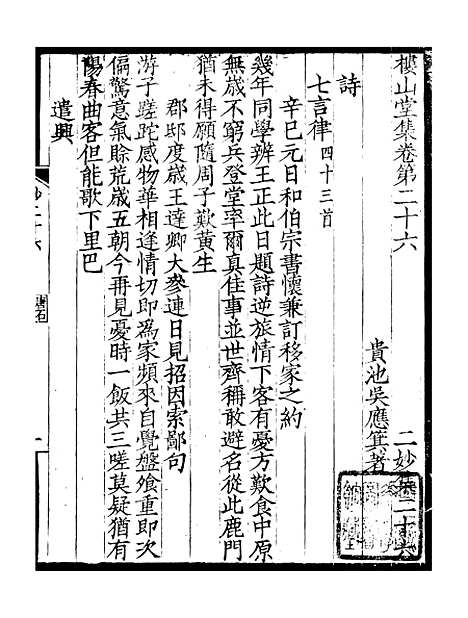 樓山堂集卷第二十六　二妙集二十六
貴池吳應箕著
詩
七言律四十三首
辛巳元日和伯宗書懷兼訂移家之約
幾年同學辨王正此日題詩逆旅情下客有憂方歎食中原
無歲不窮兵登堂率爾真佳事並世齊稱敢避名從此鹿門
猶未得願隨周子歎黃生
郡邸度歲王達卿大參連日見招因索鄙句
游子蹉跎感物華相逢情切即為家頻來自覺盤飱重即次
偏驚意氣賒荒歲五朝今再見憂時一飯共三嗟莫疑猶有
陽春曲客但能歌下里巴
遣興